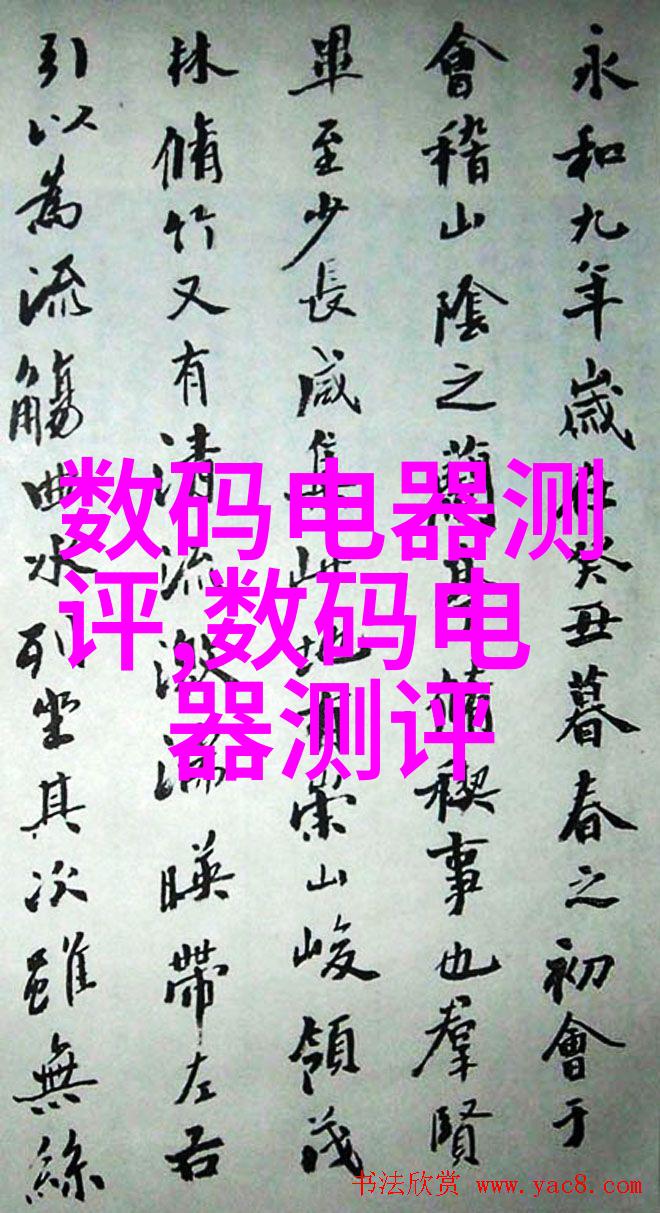 永和九年歲在癸丑暮春之初會于
會稽山陰之蘭亭脩稧事也羣賢
畢至少長咸集此地有崇山峻領茂
林脩竹又有清流激湍暎帶左右
引以為流觴曲水列坐其次雖無絲
数码电器测
评,数码电
器测评
书法欣赏 www.yac8.com